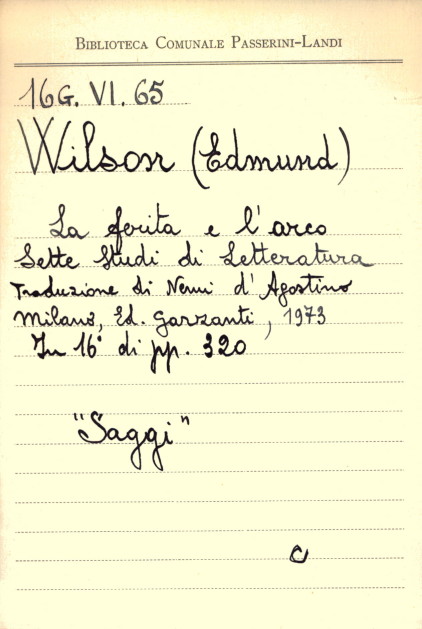 BIBLIOTECA COMUNALE PASSERINI-LANDI
16G. VI. 65
Wilson (Edmund)
La ferita e l'arco
Sette studi di Letteratura
Traduzione di Nemi d'Agostino
Milano, Ed. Garzanti, 1973
In 16° di pp. 320
"Saggi"
C